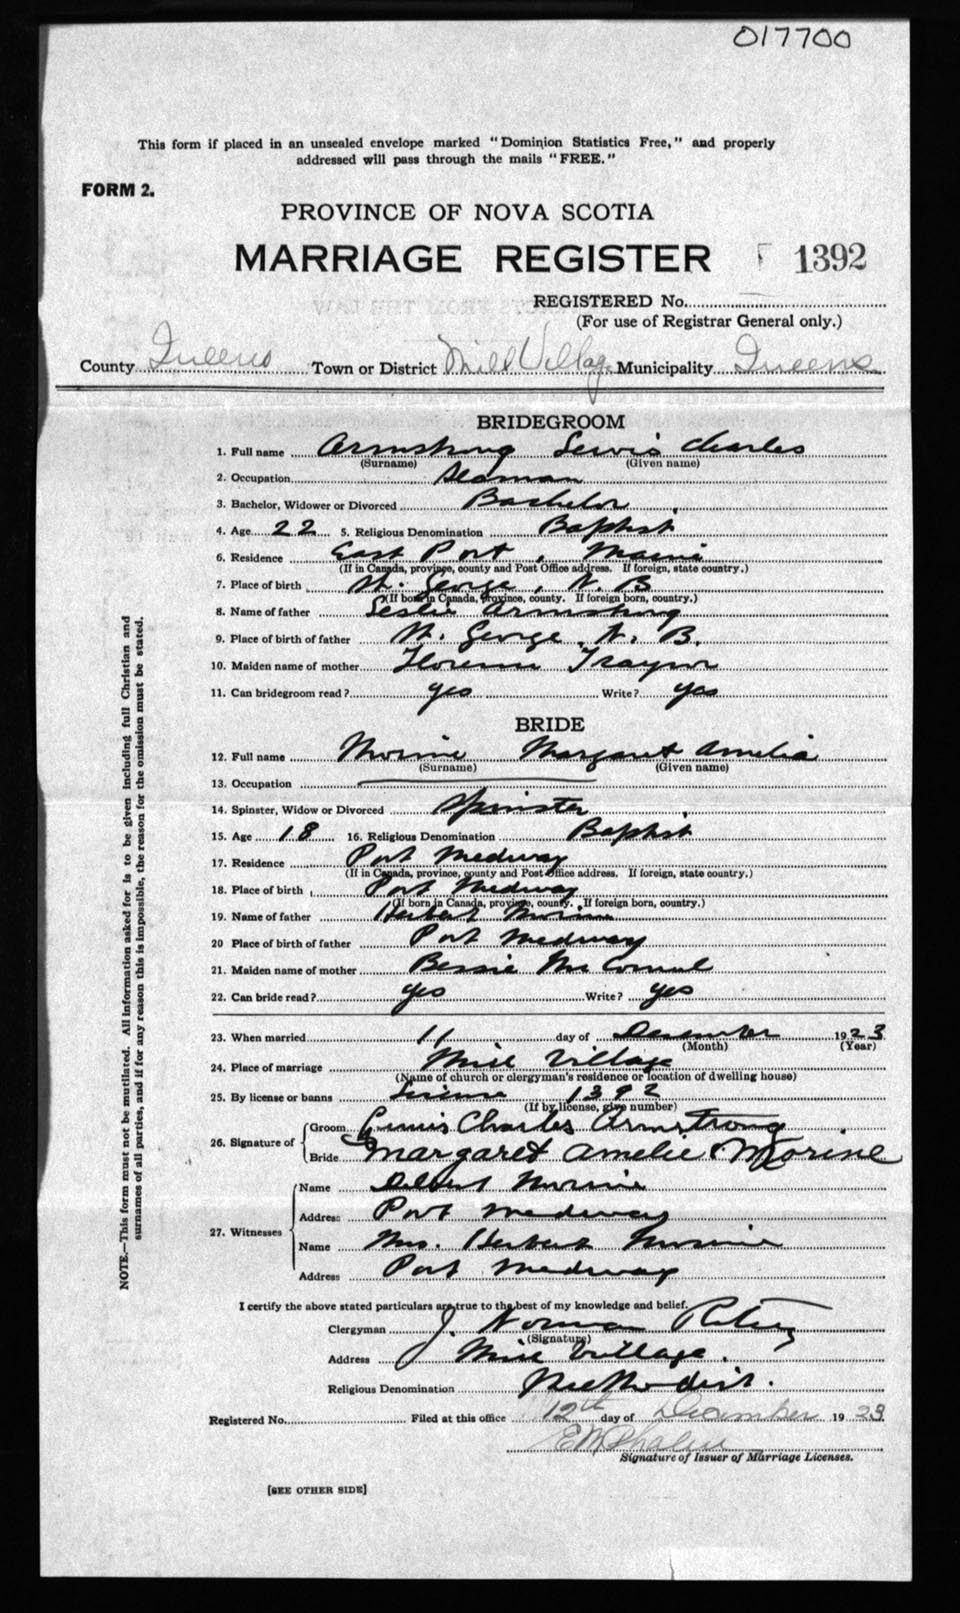 017700
This form if placed in an unsealed envelope marked "Dominion Statistics Free," and properly
addressed will pass through the mails "FREE."
FORM 2.
PROVINCE OF NOVA SCOTIA
MARRIAGE REGISTER 1392
REGISTERED No.
(For use of Registrar General only.)
County Queens Town or District Mill Village Municipality Queens
BRIDEGROOM
1. Full name Armstrong Lewis Charles
(Surname) (Given name)
2. Occupation Seaman
3. Bachelor, Widower or Divorced Bachelor
4. Age 22 5. Religious Denomination Baptist
6. Residence East Port, Maine
(If in Canada, province, county and Post Office address. If foreign, state country.)
7. Place of birth St. George, N. B
(If born in Canada, province, county. If foreign born, country.)
8. Name of father Leslie Armstrong
9. Place of birth of father St. George, N. B.
10. Maiden name of mother Florence Traynor
11. Can bridegroom read? yes Write? yes
BRIDE
12. Full name Morine Margaret Amelia
(Surname) (Given name)
13. Occupation
14. Spinster, Widow or Divorced Spinster
15. Age 18 16. Religious Denomination Baptist
17. Residence Port Medway
(If in Canada, province, county and Post Office address. If foreign, state country.)
18. Place of birth Port Medway
(If born in Canada, province, county. If foreign born, country.)
19. Name of father Herbert Morine
20 Place of birth of father Port Medway
21. Maiden name of mother Bessie
22. Can bride read? yes Write? yes
23. When married 11 day of December 1923
(Month) (Year)
24. Place of marriage Mill Village
(Name of church or clergyman's residence or location of dwelling house)
25. By license or banns License 1392
(If by license, give number)
26. Signature of Groom Lewis Charles Armstrong
Bride Margaret Amelie Morine
27. Witnesses
Name Delbert Morine
Address Port Medway
Name Mrs. Herbert Morine
Address Port Medway
I certify the above stated particulars are true to the best of my knowledge and belief.
Clergyman J. Norman
(Signature)
Address Mill Village.
Religious Denomination Methodist.
Registered No. Filed at this office 12th day of December 1923
Signature of Issuer of Marriage Licenses.
[SEE OTHER SIDE]
NOTE.—This form must not be mutilated. All information asked for is to be given including full Christian and
surnames of all parties, and if for any reason this is impossible, the reason for the omission must be stated.